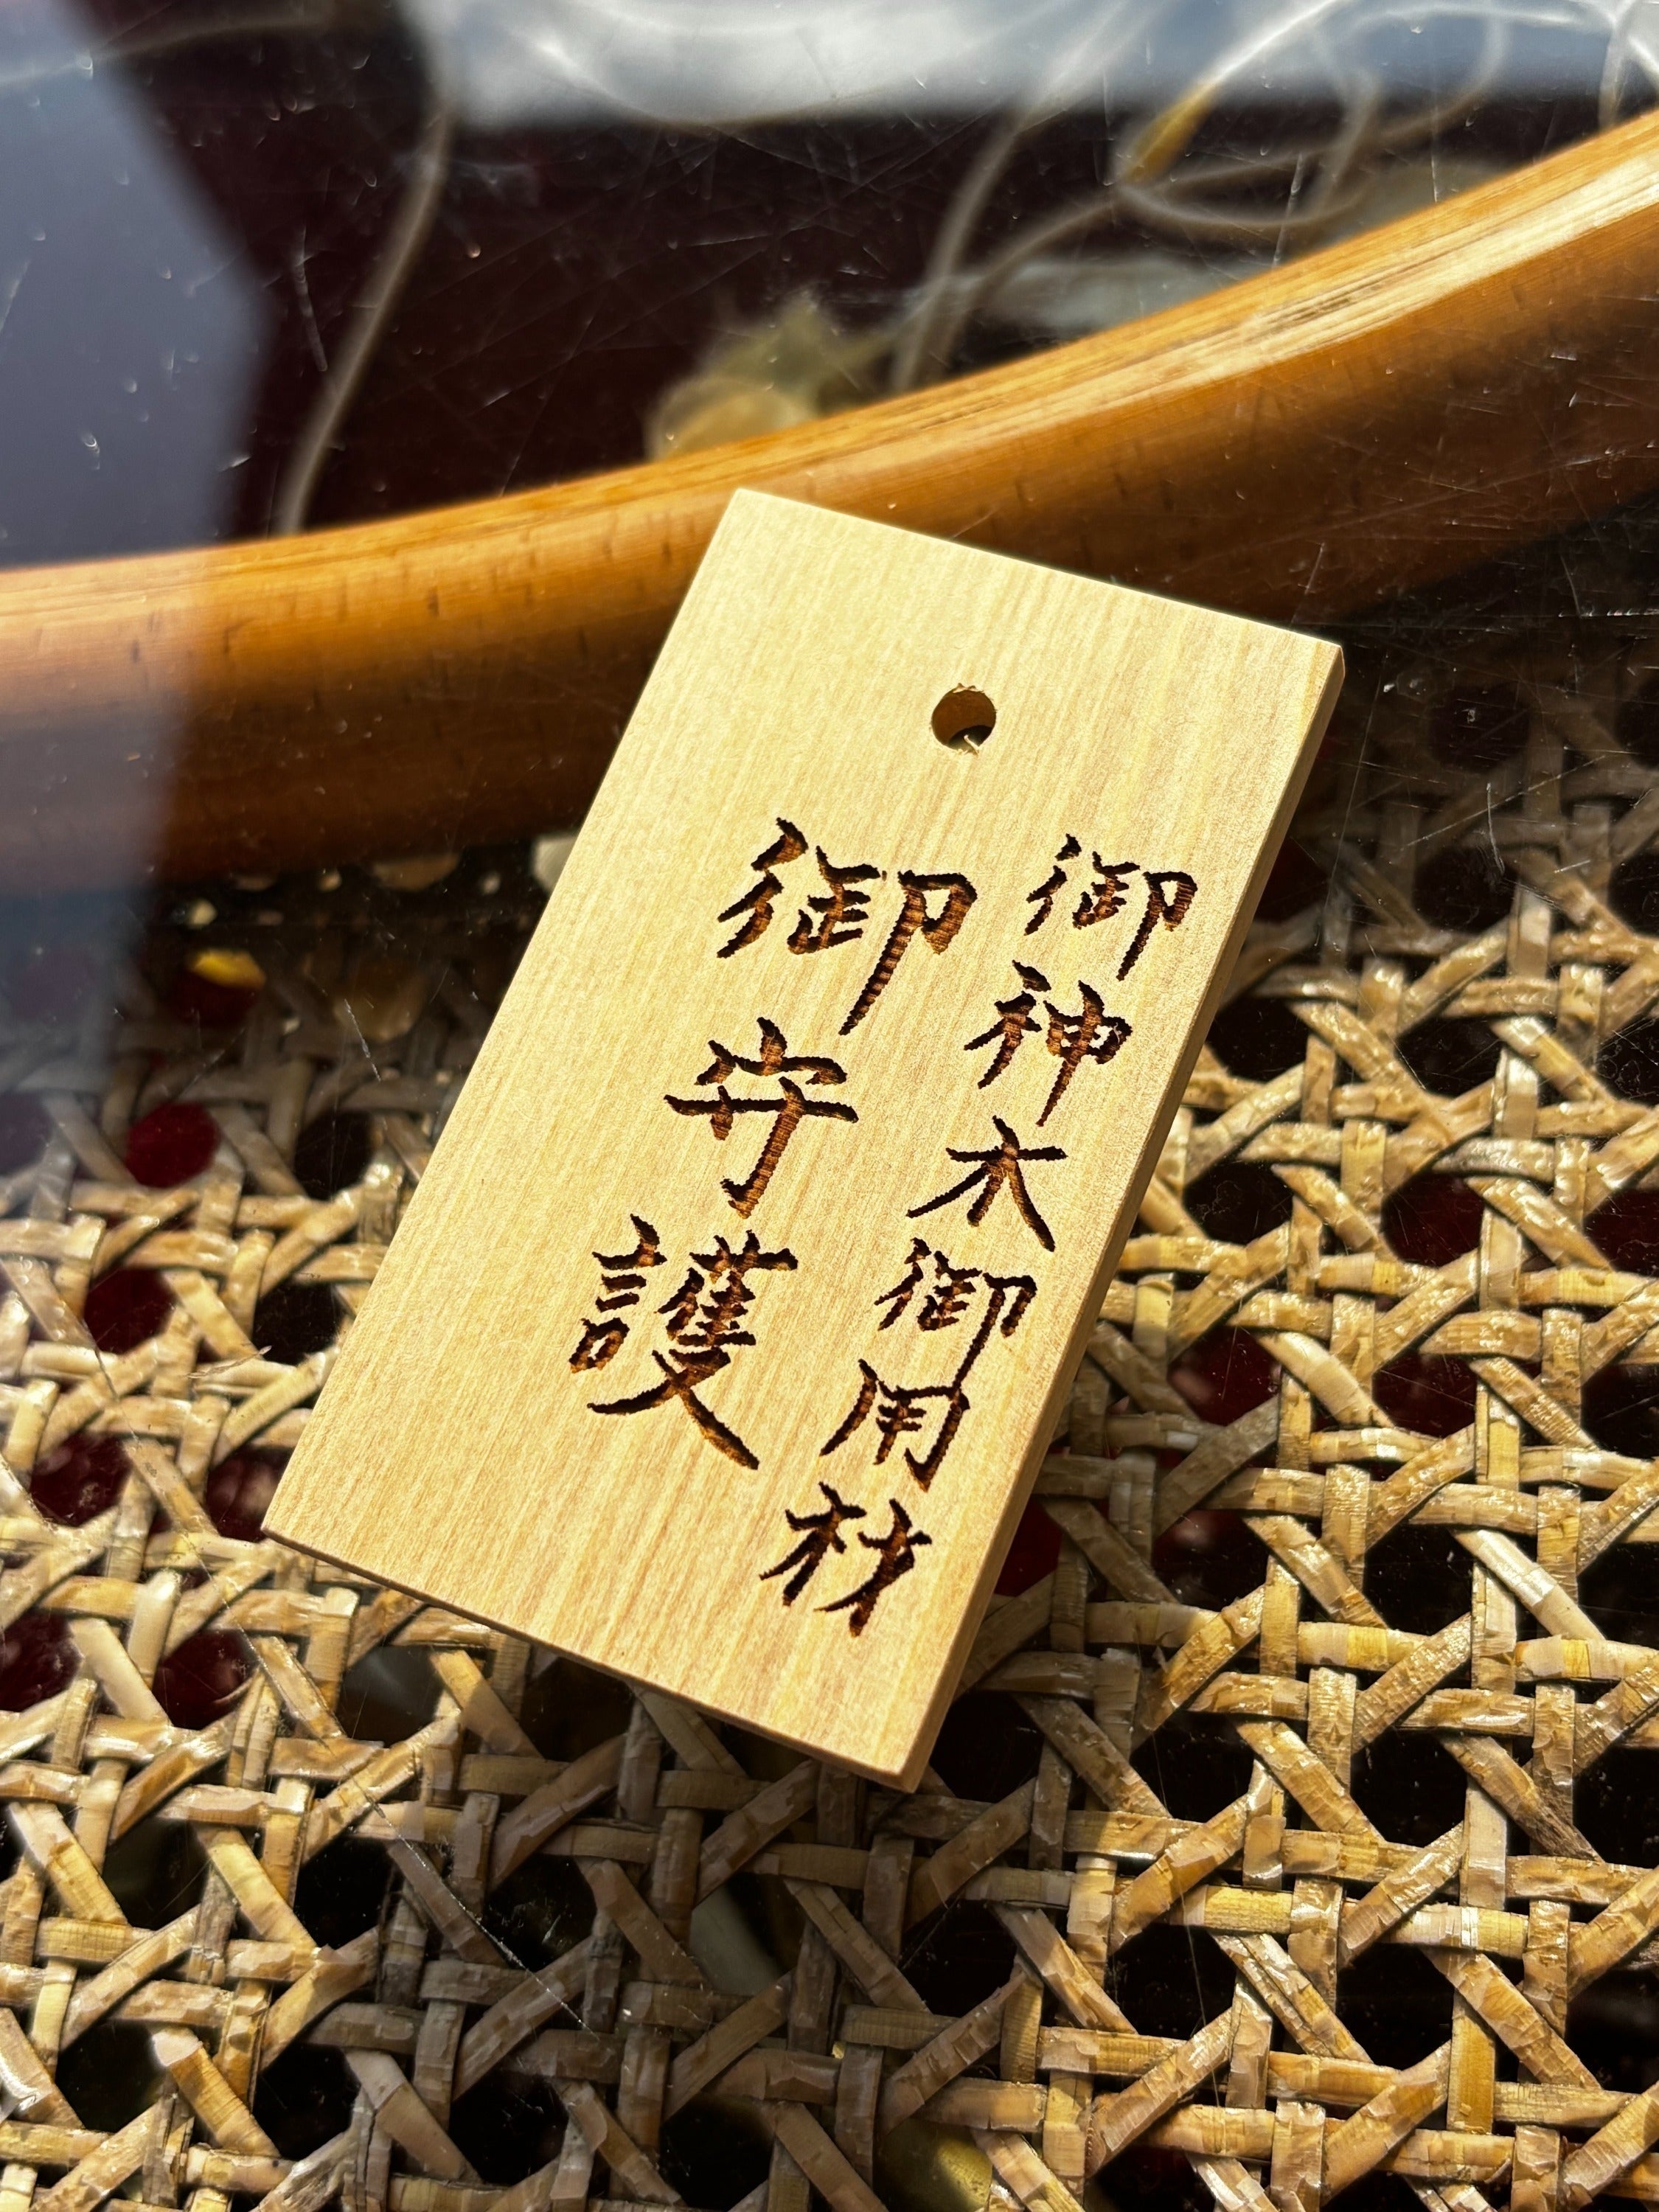 御神木御用材
御守護